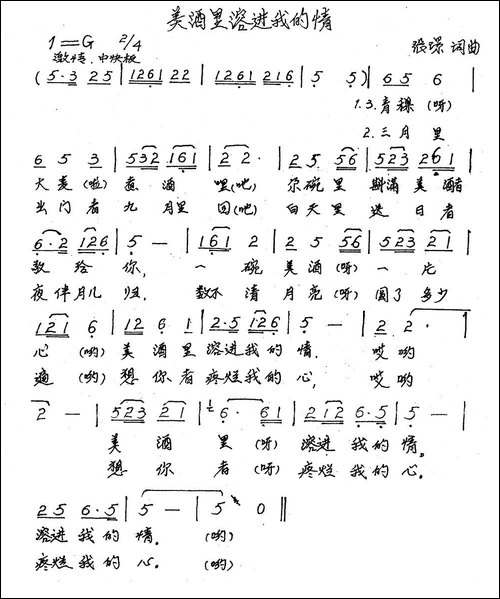 美酒里溶进我的情
1=G 2/4 张璟 词曲
激情.中快板
(5·3 25 | 1261 22 | 1261 216 | 5 5) | 65 6
1.3.青稞(呀)
2.三月 里
6 5 3 | 532 161 | 2 2· | 25 56 | 523 261
大麦(啦) 煮 酒 哩(吧) 尔碗里 斟满 美 醋
出门者 九 月里 回(吧) 白天里 迭 日者
6·2 126 | 5 — | 161 2 | 2 5 56 | 523 21
敬 给 你, 一 碗 美 酒(呀) 一 片
夜伴月儿 归. 数不 清 月亮(呀) 圆了 多少
121 6 | 12 6 1 | 2·5 126 | 5 — | 2 2·
心 (哟) 美 酒 里 溶进我的 情. 哎 哟
遍 (哟) 想 你 者 疼烂我的 心, 哎 哟
2 — | 523 21 | 1 6· 61 | 212 6·5 | 5 — |
美 酒 里(呀) 溶进 我的 情。
想 你 者(呀) 疼烂 我的 心.
25 6·5 | 5 — | 5 0 ‖
溶进 我的 情. (哟)
疼烂 我的 心. (哟)